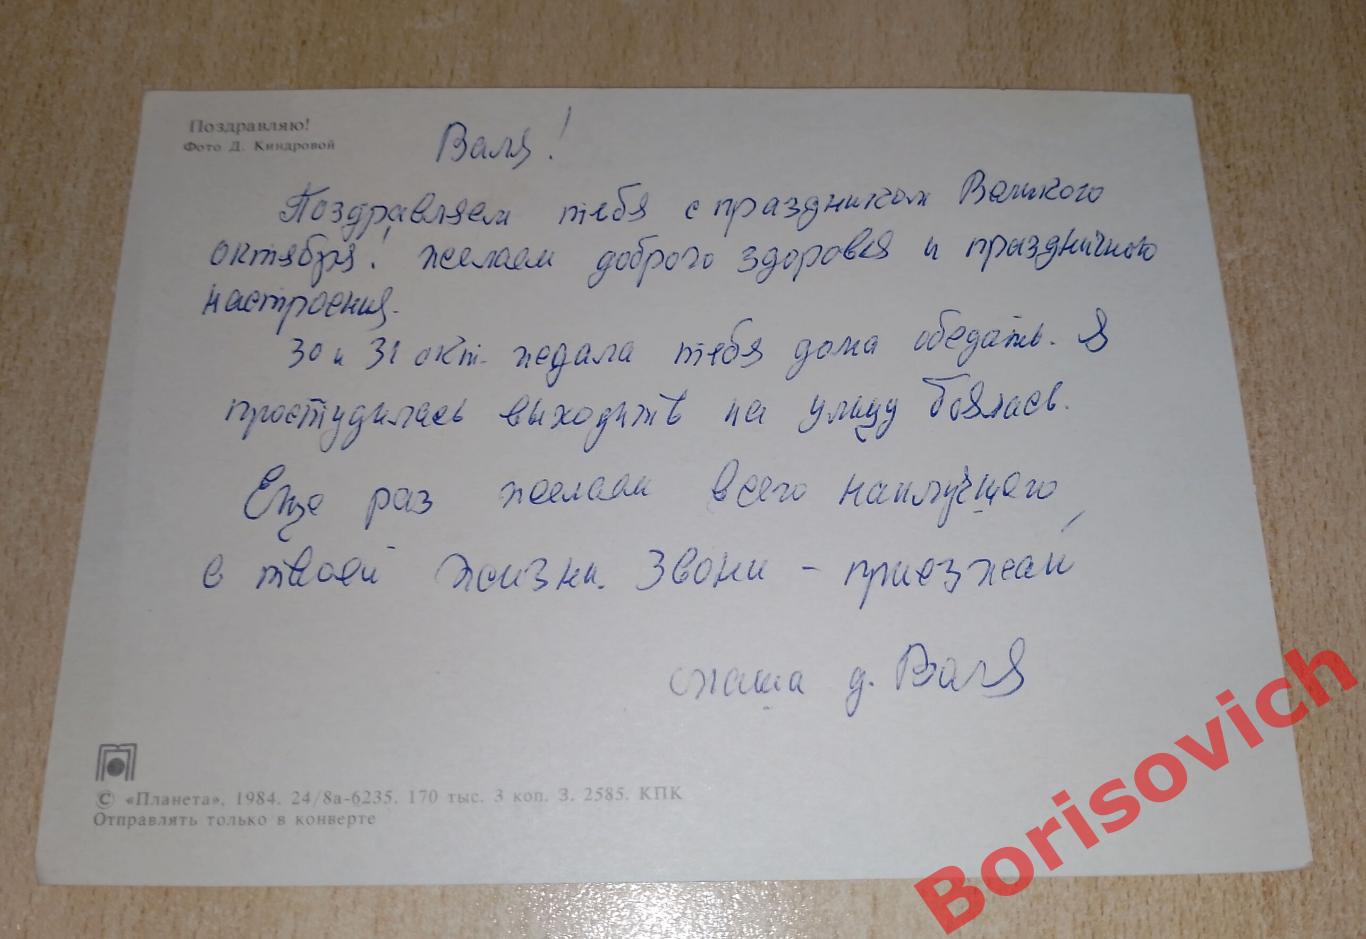 Поздравляю!
Фото Д. Киндровой
Валя!
Поздравляем тебя с праздником Великого
октября! желаем доброго здоровья и праздничного
настроения.
30 и 31 окт. ждала тебя дома обедать. Я
простудилась выходить на улицу боялась.
Еще раз желаем всего наилучшего
в твоей жизни. Звони – приезжай
д. Валя
© «Планета», 1984. 24/8а-6235. 170 тыс. 3 коп. З. 2585. КПК
Отправлять только в конверте
Borisovich